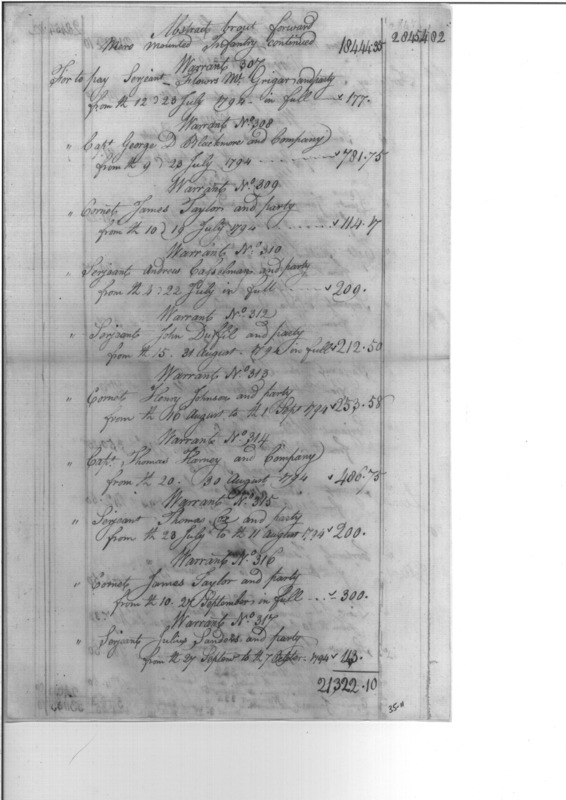 Abstract brogt forward 28454.02
Mero mounted Infantry continued 18444.35
Warrant 307
For to pay Serjeant Flowers Mc Grigar and party
from the 12 d 23 July 1794 in full 177.
Warrant No. 308
" Capt. George D Blackmore and Company
from the 9 d 23 July 1794 781.75
Warrant No. 309
" Cornet James Taylor and party
from the 10 d 18 July 1794 114.17
Warrant No. 310
" Serjeant Andrew Casselman and party
from the 3 d 22 July in full 209.
Warrant No. 312
" Serjeant John Duffil and party
from the 15. 31 August 1794 in full 212.50
Warrant No. 313
" Cornet Henry Johnson and party
from the 16 August to the 1 Sept 1794 253.58
Warrant No. 314
" Capt. Thomas Harney and Company
from the 20. 30 August 1794 486.75
Warrant No. 315
" Serjeant Thomas Cox and party
from the 23 July to the 11 August 1794 200.
Warrant No. 316
" Cornet James Taylor and party
from the 10. 27 September in full 300.
Warrant No. 317
" Serjeant Julius Sanders and party
from the 27 Septem to the 7 October 1794 143.
21322.10
35-H